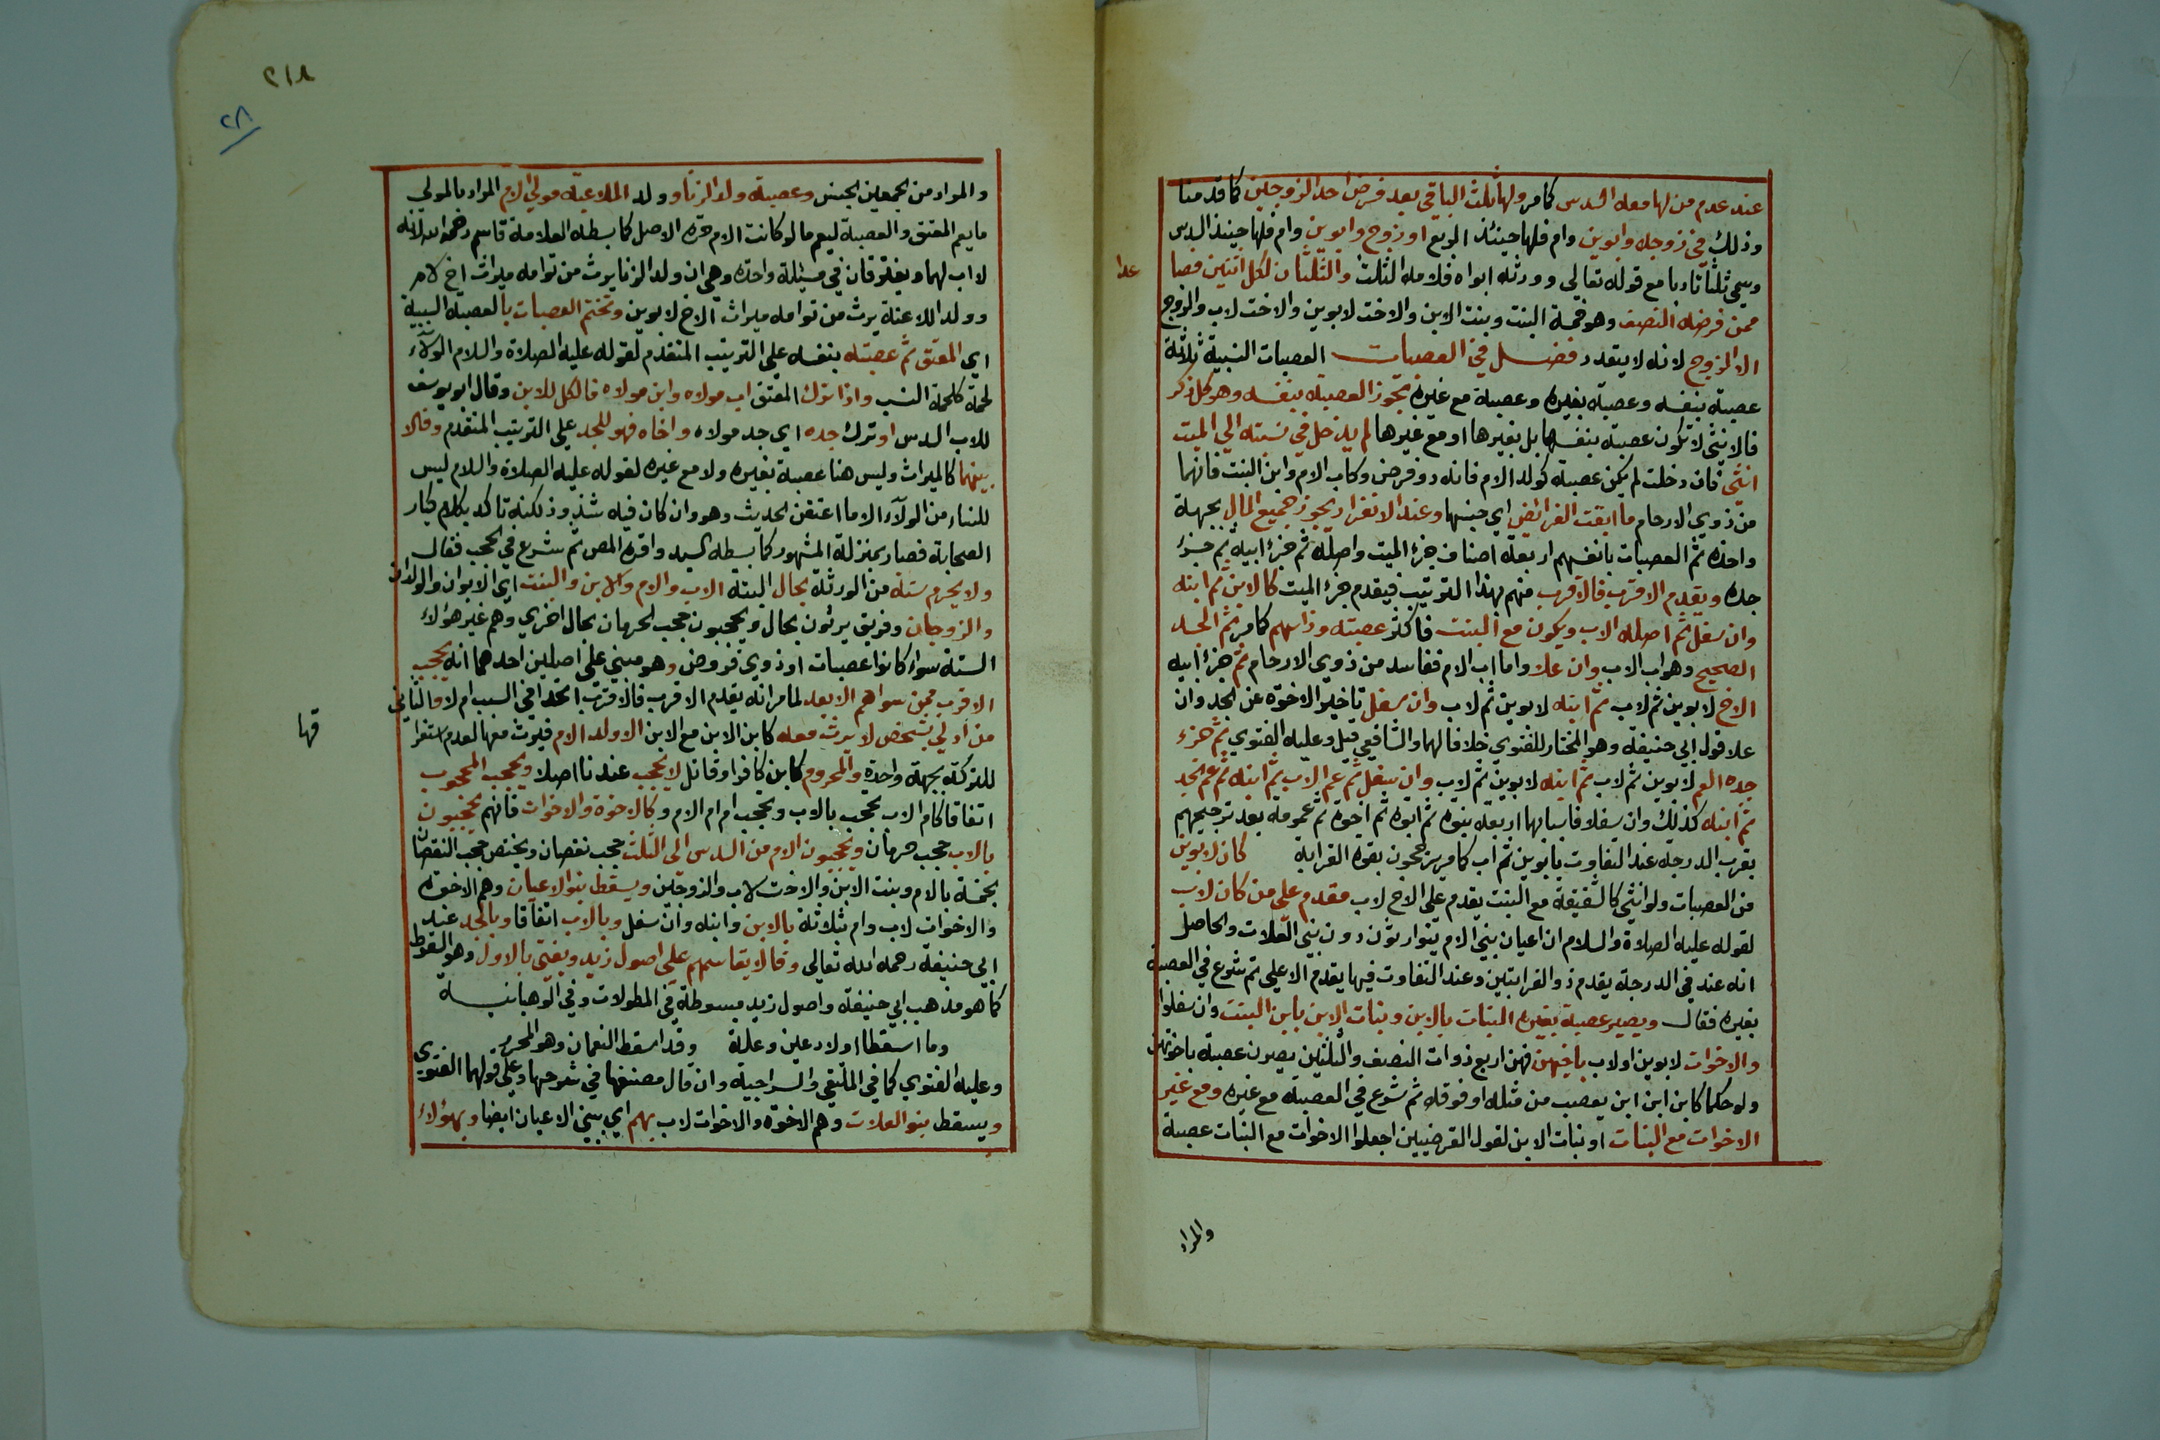 عند عدم من لها معه السدس كامر ولها ثلث الباقي بعد فرض احد الزوجين كما قدمنا
وذلك في زوجة وابوين وام فلها حينئذ الربع او زوج وابوين وام فلها حينئذ السدس
ويسمى ثلثا تادبا مع قوله تعالى وورثه ابواه فلامه الثلث والثلثان لكل اثنتين فصا
عدا
ممن فرضه النصف وهو خمسة البنت وبنت الابن والاخت لابوين والاخت لاب والزوج
الا الزوج لانه لا يتعدد فصل في العصبات العصبات النسبية ثلاثة
عصبة بنفسه وعصبة بغيره وعصبة مع غيره يحوز العصبة بنفسه وهو كل ذكر
فالانثى لا تكون عصبة بنفسها بل بغيرها او مع غيرها لم يدخل في نسبته الى الميت
انثى فان دخلت لم يكن عصبة كولد الام فانه ذو فرض وكاب الام وابن البنت فانهما
من ذوي الارحام ما ابقت الفرائض اي جنسها وعند الانفراد يحوز جميع المال بجهة
واحدة ثم العصبات بانفسهم اربعة اصناف جزء الميت واصله ثم جزء ابيه ثم جزء
جده ويقدم الاقرب فالاقرب منهم بهذا الترتيب فيقدم جزء الميت كالابن ثم ابنه
وان سفل ثم اصله الاب ويكون مع البنت فاكثر عصبة وذا سهم كامر ثم الجد
الصحيح وهو اب الاب وان علا واما اب الام ففاسد من ذوي الارحام ثم جزء ابيه
الاخ لابوين ثم لاب ثم ابنه لابوين ثم لاب وان سفل تاخير الاخوة عن الجد وان
علا قول ابي حنيفة وهو المختار للفتوى خلافا لهما والشافعي قيل وعليه الفتوى ثم جزء
جده العم لابوين ثم لاب ثم ابنه لابوين ثم لاب وان سفل ثم عم الاب ثم ابنه ثم عم الجد
ثم ابنه كذلك وان سفلا فاسبابها اربعة بنوة ثم ابوة ثم اخوة ثم عمومة بعد ترجيحهم
بقرب الدرجة عند التفاوت بابوين ثم اب كامر يرجحون بقوة القرابة كان لابوين
من العصبات ولو انثى كالشقيقة مع البنت يقدم على الاخ لاب مقدم على من كان لاب
لقوله عليه الصلاة والسلام ان اعيان بني الام يتوارثون دون بني العلات والحاصل
انه عند في الدرجة يقدم ذو القرابتين وعند التفاوت فيها يقدم الاعلى ثم شرع في العصبة
بغيره فقال ويصير عصبة بغيره البنات بالابن وبنات الابن بابن البنت وان سفلوا
والاخوات لابوين او لاب باخيهن فهن اربع ذوات النصف والثلثين يصرن عصبة باخوتهن
ولو حكما كابن ابن ابن يعصب من مثله او فوقه ثم شرع في العصبة مع غيره ومع غير
الاخوات مع البنات او بنات الابن لقول الفرضيين اجعلوا الاخوات مع البنات عصبة
والمراد
٢١٨
٢٨
والمراد من الجمعين الجنس وعصبة ولد الزنا وولد الملاعنة مولى الام المراد بالمولى
ما يعم المعتق والعصبة ليعم ما لو كانت الام حرة الاصل كما بسطه العلامة قاسم رحمه الله لانه
لا اب لهما ويفترقان في مسئلة واحدة وهي ان ولد الزنا يرث من توامه ميراث اخ لام
وولد اللاعنة يرث من توامه ميراث الاخ لابوين وتختم العصبات بالعصبة السببية
اي المعتق ثم عصبته بنفسه على الترتيب المتقدم لقوله عليه الصلاة والسلام الولاء
لحمة كلحمة النسب واذا ترك المعتق اب مولاه وابن مولاه فالكل للابن وقال ابو يوسف
للاب السدس او ترك جده اي جد مولاه واخاه فهو للجد على الترتيب المتقدم وقالا
بينهما كالميراث وليس هنا عصبة بغيره ولا مع غيره لقوله عليه الصلاة والسلام ليس
للنساء من الولاء الا ما اعتقن الحديث وهو وان كان فيه شذوذ لكنه تاكد بكلام كبار
الصحابة فصار بمنزلة المشهور كما بسطه السيد واقره المص ثم شرع في الحجب فقال
ولا يحرم ستة من الورثة بحال البتة الاب والام والابن والبنت اي الابوان والولدان
والزوجان وفريق يرثون بحال ويحجبون حجب الحرمان بحال اخرى وهم غير هؤلاء
الستة سواء كانوا عصبات او ذوي فروض وهو مبني على اصلين احدهما انه يحجب
الاقرب ممن سواهم الابعد لما مر انه يقدم الاقرب فالاقرب اتحدا في السبب ام لا والثاني
من ادلى بشخص لا يرث معه كابن الابن مع الابن الا ولد الام فيرث معها لعدم استغرا
قها
للتركة بجهة واحدة والمحروم كابن كافر او قاتل لا يحجب عندنا اصلا ويحجب المحجوب
اتفاقا كام الاب تحجب بالاب وتحجب ام ام الام وكالاخوة والاخوات فانهم يحجبون
بالاب حجب حرمان ويحجبون الام من السدس الى الثلث حجب نقصان ويختص حجب النقصان
بخمسة بالام وبنت الابن والاخت لاب والزوجين ويسقط بنو الاعيان وهم الاخوة
والاخوات لاب وام بثلاثة بالابن وابنه وان سفل وبالاب اتفاقا وبالجد عند
ابي حنيفة رحمه الله تعالى وقالا يقاسمهم على اصول زيد ويفتى بالاول وهو السقوط
كما هو مذهب ابي حنيفة واصول زيد مبسوطة في المطولات وفي الوهبانية
وما اسقطا اولاد عين وعلة وقد اسقط النعمان وهو المحرر
وعليه الفتوى كما في الملتقى والسراجية وان قال مصنفها في شرحها وعلى قولهما الفتوى
ويسقط بنو العلات وهم الاخوة والاخوات لاب بهم اي ببني الاعيان ايضا وبهؤلاء